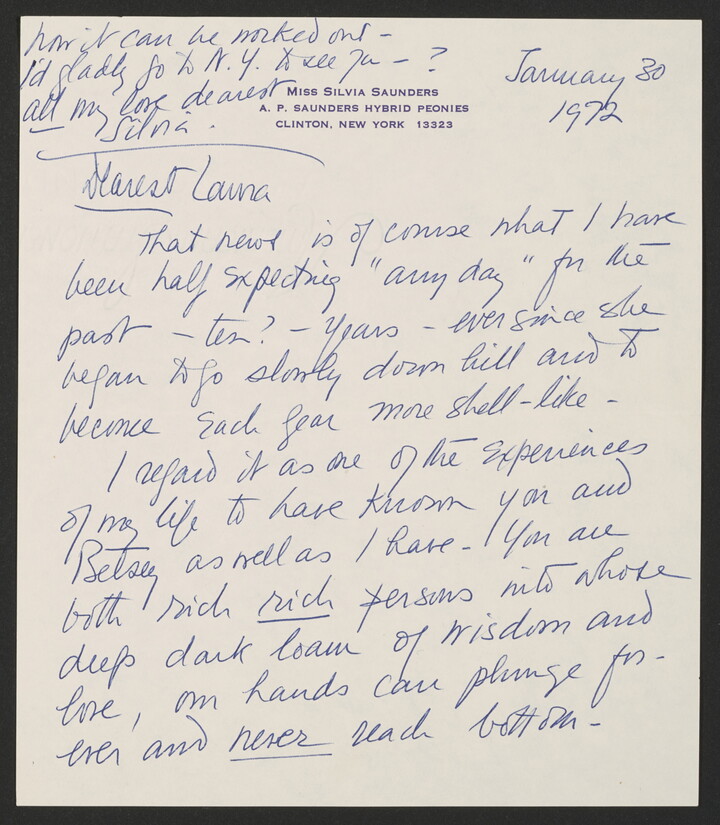 how it can be worked out –
I'd gladly go to N.Y. to see you – ?
all my love dearest
Silvia.
Miss Silvia Saunders
A. P. Saunders Hybrid Peonies
Clinton, New York 13323
January 30
1972
Dearest Laura
That news is of course what I have
been half expecting "any day" for the
past – ten? – years – ever since she
began to go slowly down hill and to
become each year more shell-like –
I regard it as one of the experiences
of my life to have known you and
Betsey as well as I have – You are
both rich rich persons into whose
deep dark loam of wisdom and
love, our hands can plunge for-
ever and never reach bottom –